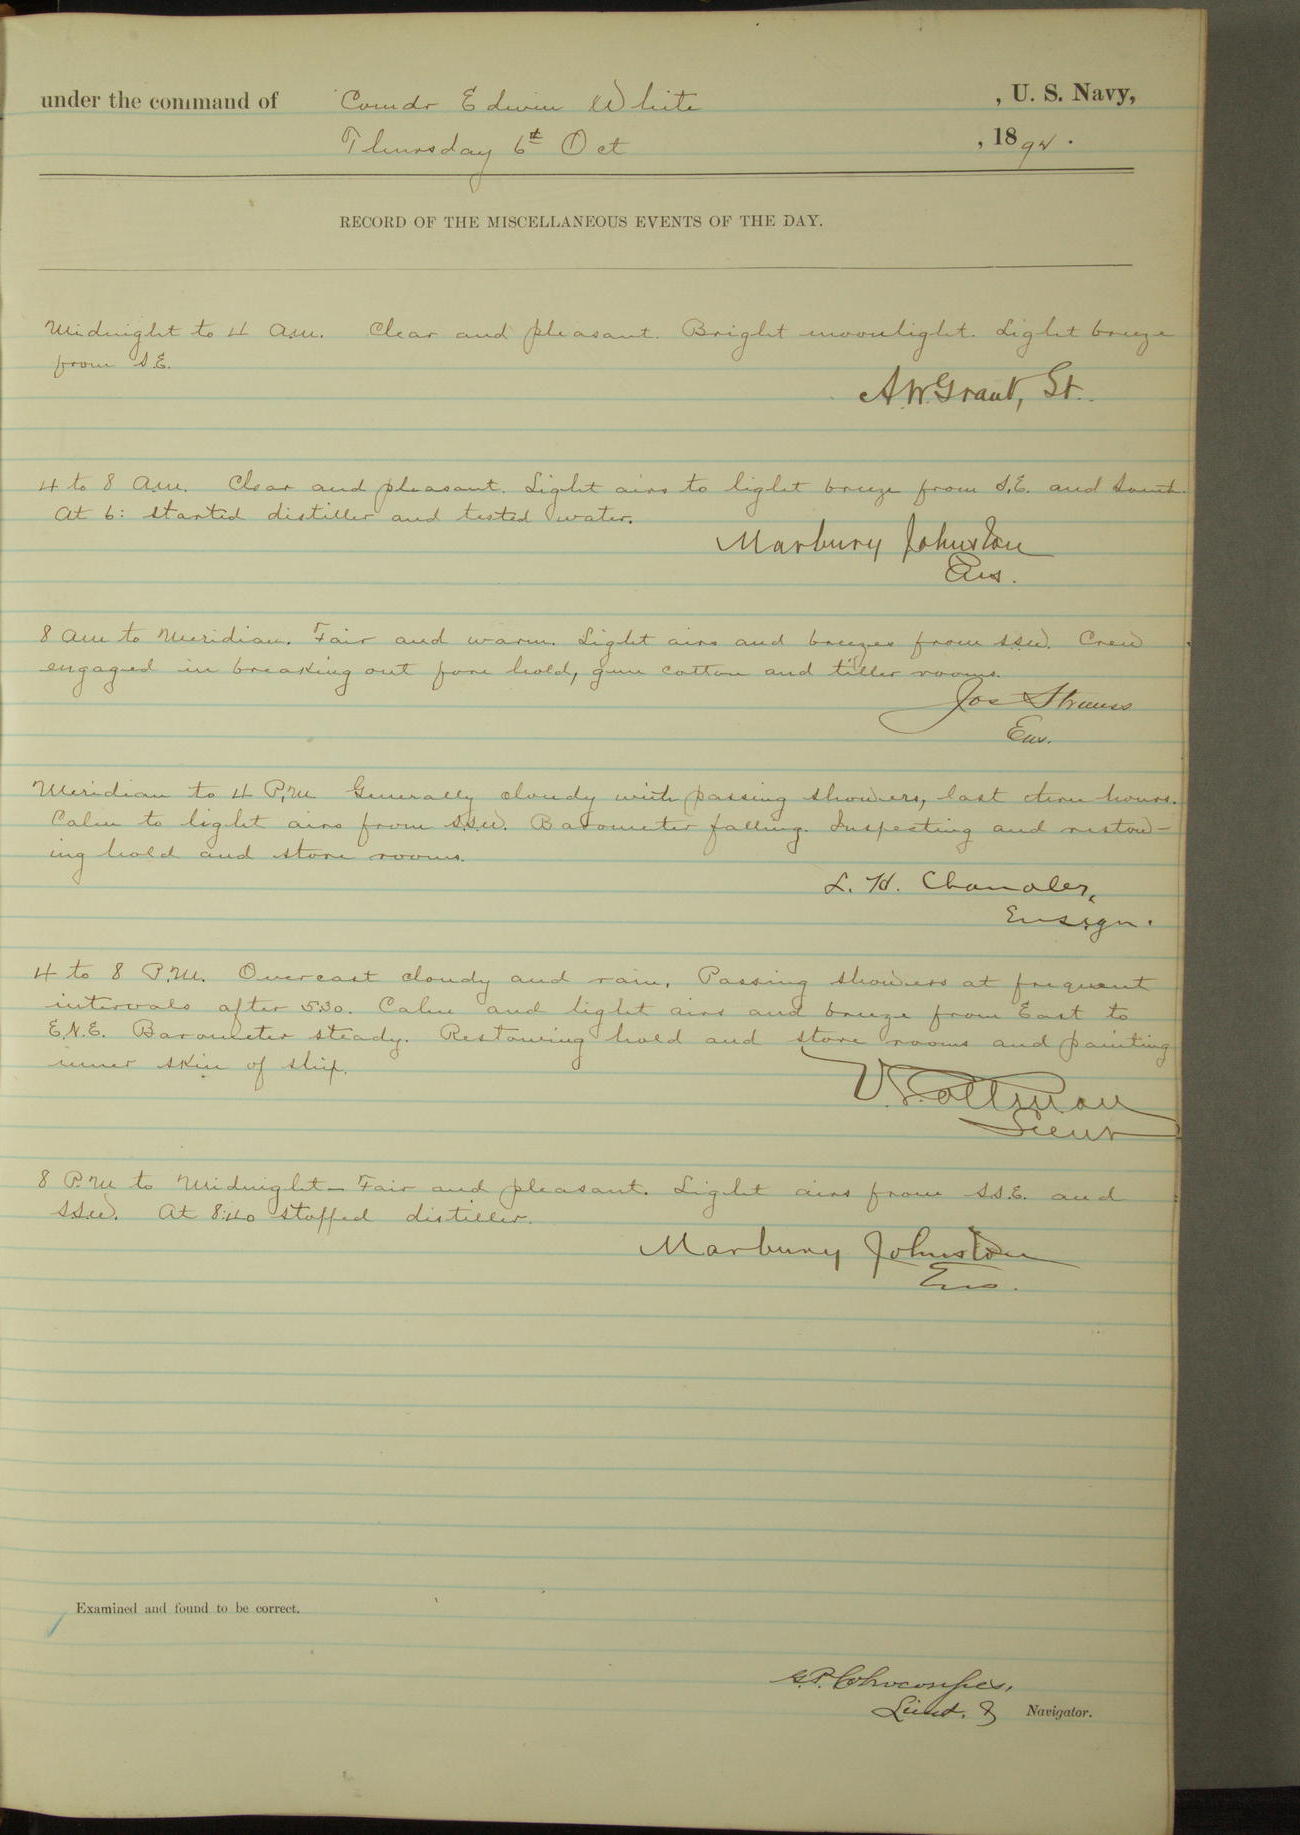 under the command of Comdr Edwin White , U. S. Navy,
Thursday 6th Oct , 1892.
RECORD OF THE MISCELLANEOUS EVENTS OF THE DAY.
Midnight to 4 A.M. Clear and pleasant. Bright moonlight. Light breeze
from S.E.
A.W. Grant, Lt.
4 to 8 A.M. Clear and pleasant. Light airs to light breeze from S.E. and South.
At 6: started distiller and tested water.
Marbury Johnston
Ens.
8 AM to Meridian. Fair and warm. Light airs and breezes from SSW. Crew
engaged in breaking out fore hold, gun cotton and tiller rooms.
Jos Strauss
Ens.
Meridian to 4 P.M Generally cloudy with passing showers, last three hours.
Calm to light airs from SSW. Barometer falling. Inspecting and restow-
ing hold and store rooms.
L. H. Chandler,
Ensign.
4 to 8 P.M. Overcast cloudy and rain. Passing showers at frequent
intervals after 5.30. Calm and light airs and breeze from East to
E.N.E. Barometer steady. Restowing hold and store rooms and painting
inner skin of ship.
Lieut
8 P.M to Midnight – Fair and pleasant. Light airs from S.S.E. and
SSW. At 8:40 stopped distiller.
Marbury Johnston
Ens.
Examined and found to be correct.
G.P. Colvocoresses,
Lieut. & Navigator.